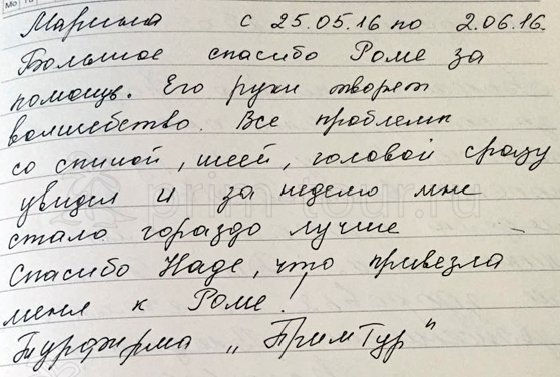 Марина с 25.05.16 по 2.06.16.
Большое спасибо Роме за
помощь. Его руки творят
волшебство. Все проблемы
со спиной, шеей, головой сразу
увидел и за неделю мне
стало гораздо лучше
Спасибо Наде, что привезла
меня к Роме!
Турфирма „ПримТур"
prim-tour.ru